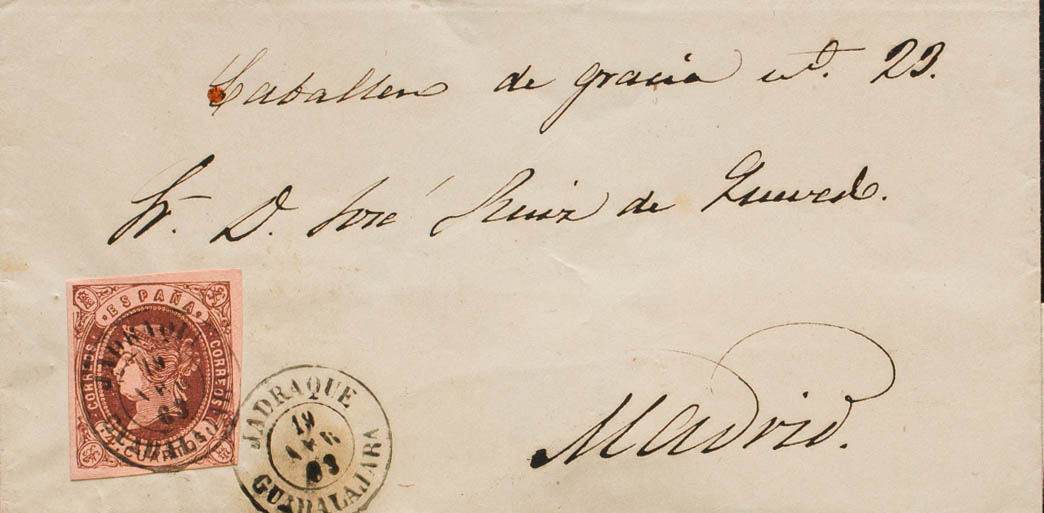 Caballero de gracia nº. 23.
Sr. D. José Ruiz de Quevedo.
Madrid.
ESPAÑA
CORREOS CORREOS
CUARTOS
JADRAQUE
19
63
GUADALAJARA
JADRAQUE
19
GUADALAJARA